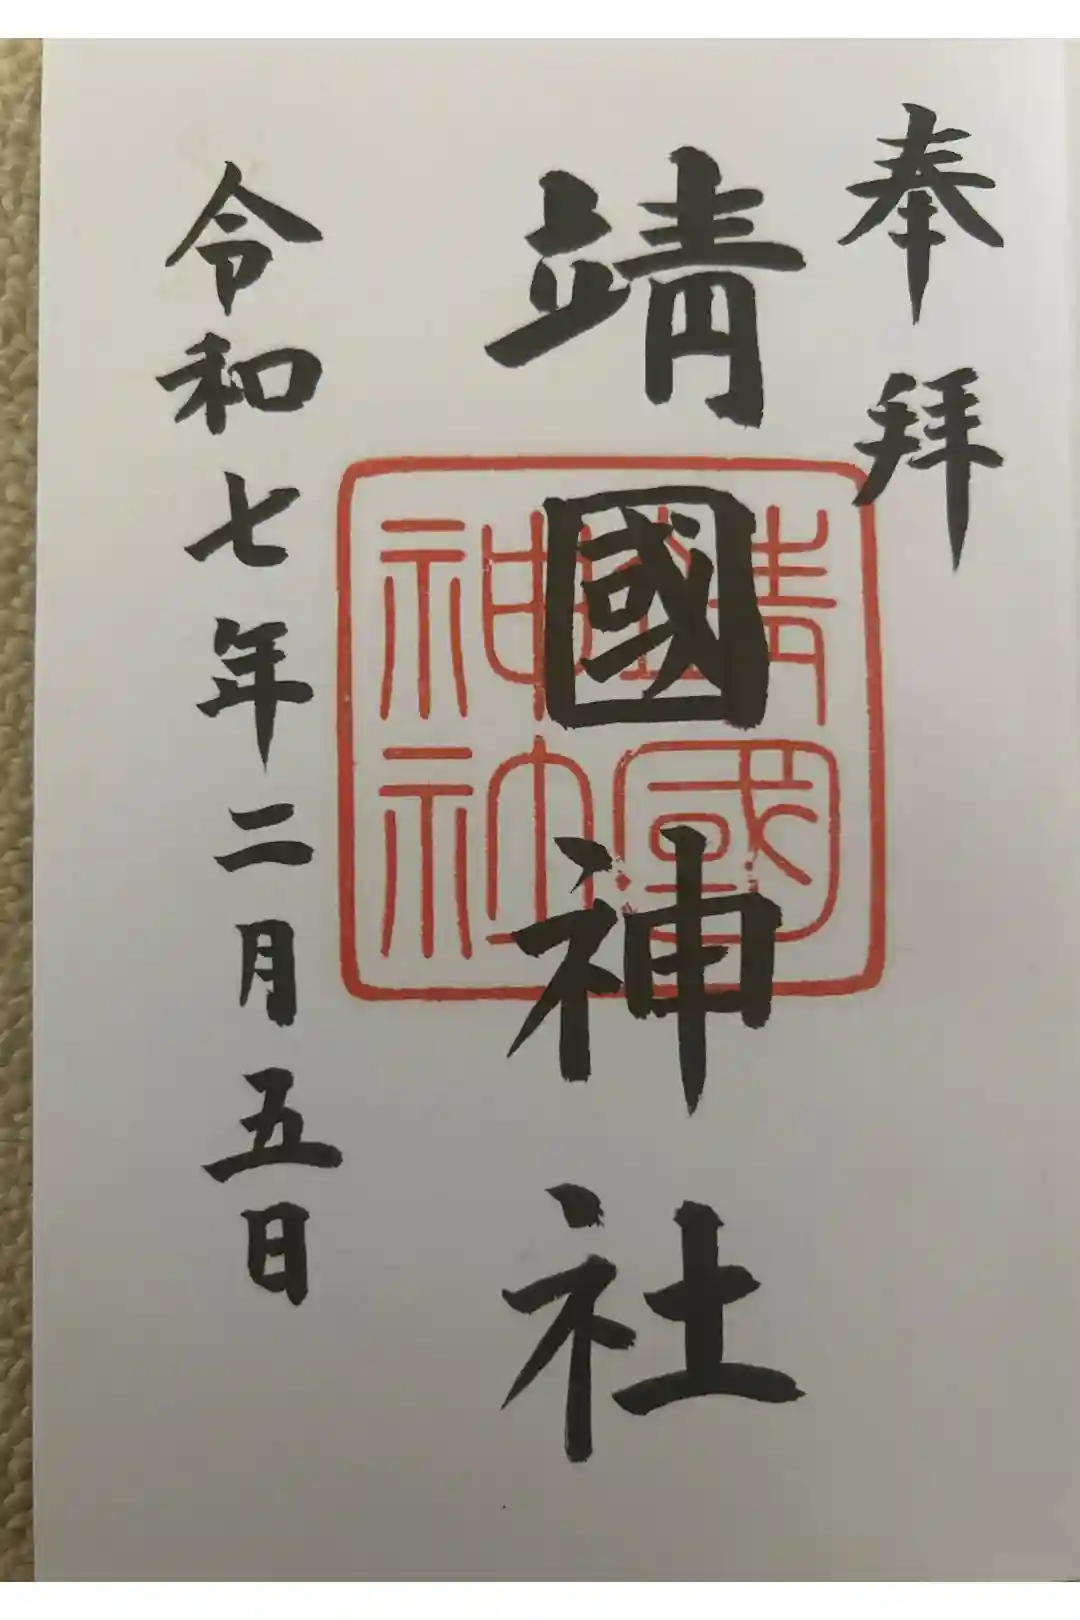 奉拜
靖國神社
靖國
神社
令和七年二月五日